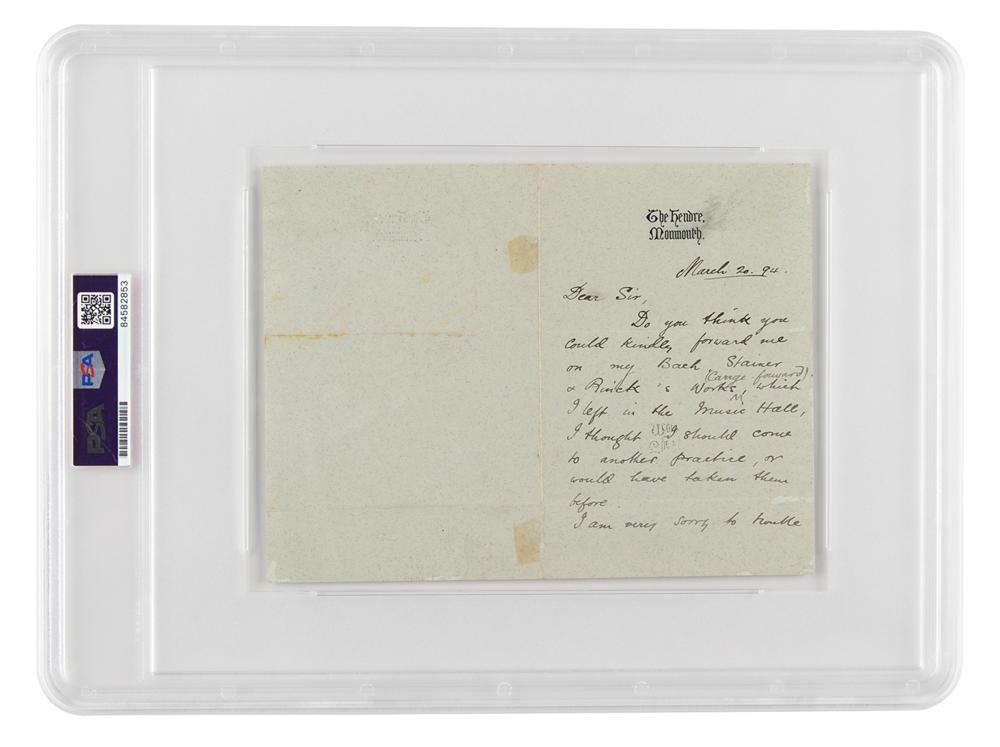 The Hendre,
Monmouth.
March 20. 94.
Dear Sir,
Do you think you
could kindly forward me
on my Bach Stainer
(Carriage forward).
& Rinck's Works, which
I left in the Music Hall,
I thought I should come
to another practice, or
would have taken them
before.
I am very sorry to trouble
84582853
PSA
PSA